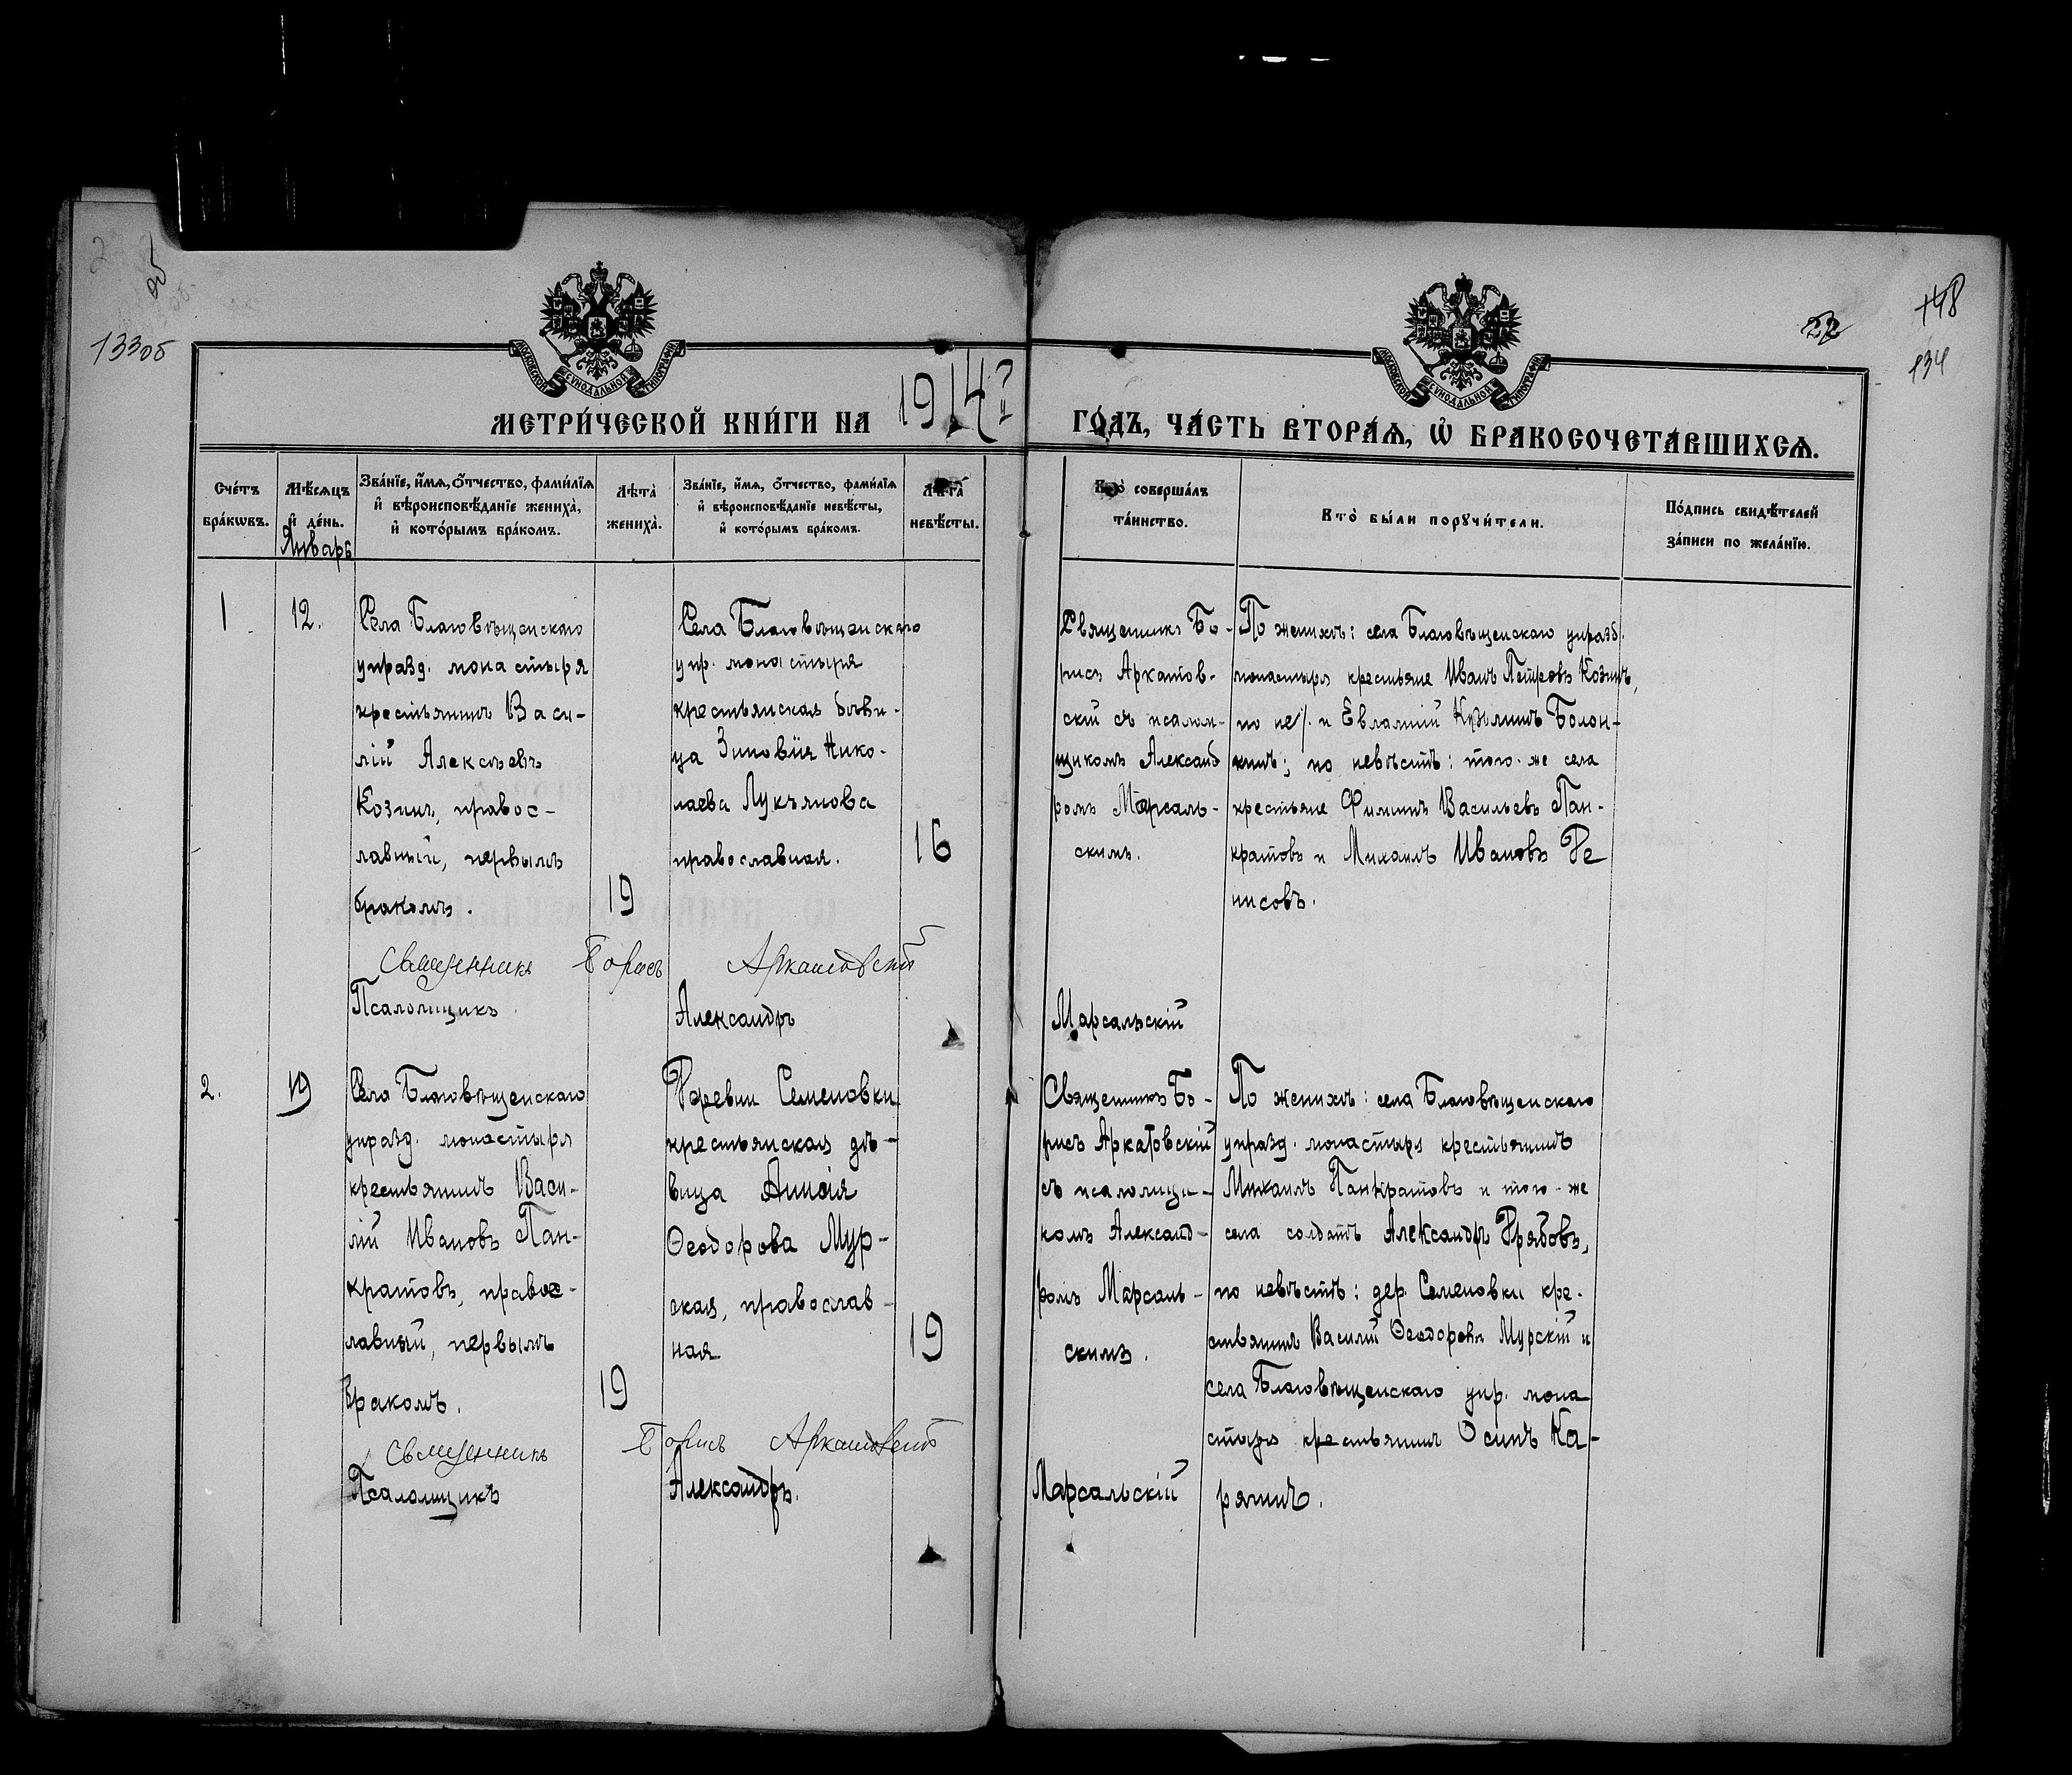 133об
148
134
МОСКОВСКОЙ СѴНОДАЛЬНОЙ ТИПОГРАФІИ
МОСКОВСКОЙ СѴНОДАЛЬНОЙ ТИПОГРАФІИ
МЕТРИ́ЧЕСКОЙ КНИ́ГИ НА 1914 ГО́ДЪ, ЧА́СТЬ ВТОРА́Ѧ, Ѽ БРАКОСОЧЕТА́ВШИХСѦ.
Сче́тъ
бра́кѡвъ.
Мѣ́сѧцъ
и҆ де́нь.
Январь
Зва́нїе, и҆́мѧ, ѻ҆́тчество, фами́лїѧ
и҆ вѣроисповѣ́данїе жениха̀,
и҆ кото́рымъ бра́комъ.
Лѣта̀
жениха̀.
Зва́нїе, и҆́мѧ, ѻ҆́тчество, фами́лїѧ
и҆ вѣроисповѣ́данїе невѣ́сты,
и҆ кото́рымъ бра́комъ.
Лѣта̀
невѣ́сты.
Кто̀ соверша́лъ
та́инство.
Кто̀ бы́ли порꙋчи́тели.
По́дпись свидѣ́телей
за́писи по жела́нїю.
1
12.
Села Благовѣщенскаго
упразд. монастыря
крестьянинъ Васи-
лій Алексѣевъ
Козинъ, правос-
лавный, первымъ
бракомъ.
19
Села Благовѣщенскаго
упр. монастыря
крестьянская дѣви-
ца Зиновія Нико-
лаева Лукьянова
православная.
16
Священникъ Бо-
рисъ Аркатов-
скій съ псалом-
щикомъ Александ
ромъ Марсаль-
скимъ.
По женихѣ: села Благовѣщенскаго упразд.
монастыря крестьяне Иванъ Петровъ Козинъ,
и Евлампій Болон-
кинъ; по невѣстѣ: того-же села
крестьяне Филиппъ Васильевъ Пан-
кратовъ и Михаилъ Ивановъ Де
нисовъ.
Священникъ Борисъ Аркатовскій
Псаломщикъ Александръ Марсальскій
2.
19
Села Благовѣщенскаго
упразд. монастыря
крестьянинъ Васи-
лій Ивановъ Пан-
кратовъ, правос-
лавный, первымъ
бракомъ.
19
Деревни Семеновки
крестьянская дѣ-
вица Анисія
Ѳеодорова Мур-
ская, православ-
ная
19
Священникъ Бо-
рисъ Аркатовскій
съ псаломщи-
комъ Александ-
ромъ Марсаль-
скимъ.
По женихѣ: села Благовѣщенскаго
упразд. монастыря крестьянинъ
Михаилъ Панкратовъ и того-же
села солдатъ Александръ Рябовъ,
по невѣстѣ: дер. Семеновки кре-
стьянинъ Василій Ѳеодоровъ Мурскій и
села Благовѣщенскаго упр. мона
стыря крестьянинъ Осипъ Ка-
рякинъ.
Священникъ Борисъ Аркатовскій
Псаломщикъ Александръ Марсальскій